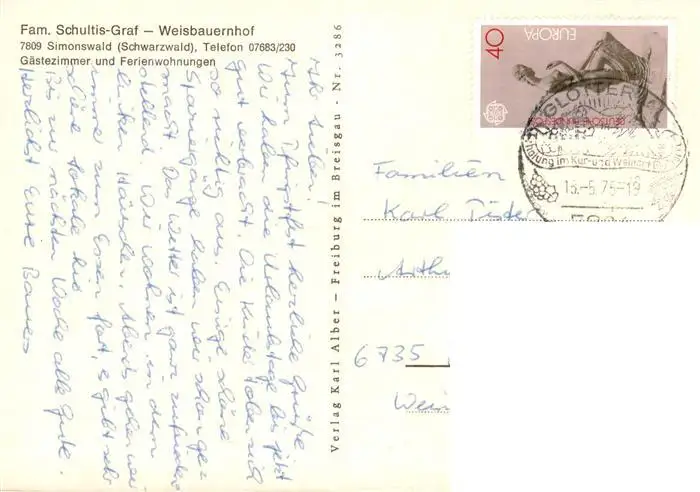 Fam. Schultis-Graf – Weisbauernhof
7809 Simonswald (Schwarzwald), Telefon 07683/230
Gästezimmer und Ferienwohnungen
Ihr Lieben!
Zum Pfingstfest herzliche Grüße
Wir haben die Urlaubstage bis jetzt
gut verbracht. Die Kinder toben sich
so richtig aus. Einige schöne
Spaziergänge haben wir schon ge-
macht. Das Wetter ist ganz zufrieden
stellend. Wir wohnen in dem
linken Häuschen. Abends gehen wir
immer zum Essen fort, es gibt sehr
schöne Lokale hier.
Bis zur nächsten Woche alles Gute.
Herzlichst Eure
Verlag Karl Alber – Freiburg im Breisgau - Nr. 3286
40
EUROPA
DEUTSCHE BUNDESPOST
GLOTTERT
Erholung im Kur- und Weinort
15.-5.75-19
Familien
Karl
6735